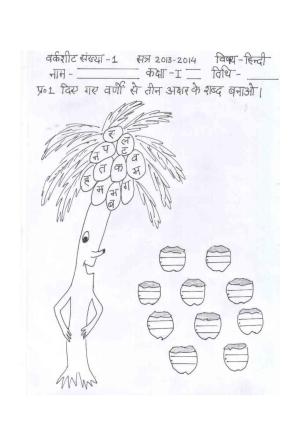 वर्कशीट संख्या -1 सत्र 2013-2014 विषय - हिन्दी
नाम - कक्षा - I तिथि -
प्र॰1. दिए गए वर्णो से तीन अक्षर के शब्द बनाओ।
र
न प ल
ट
ह त क व
म
म म ग
ब